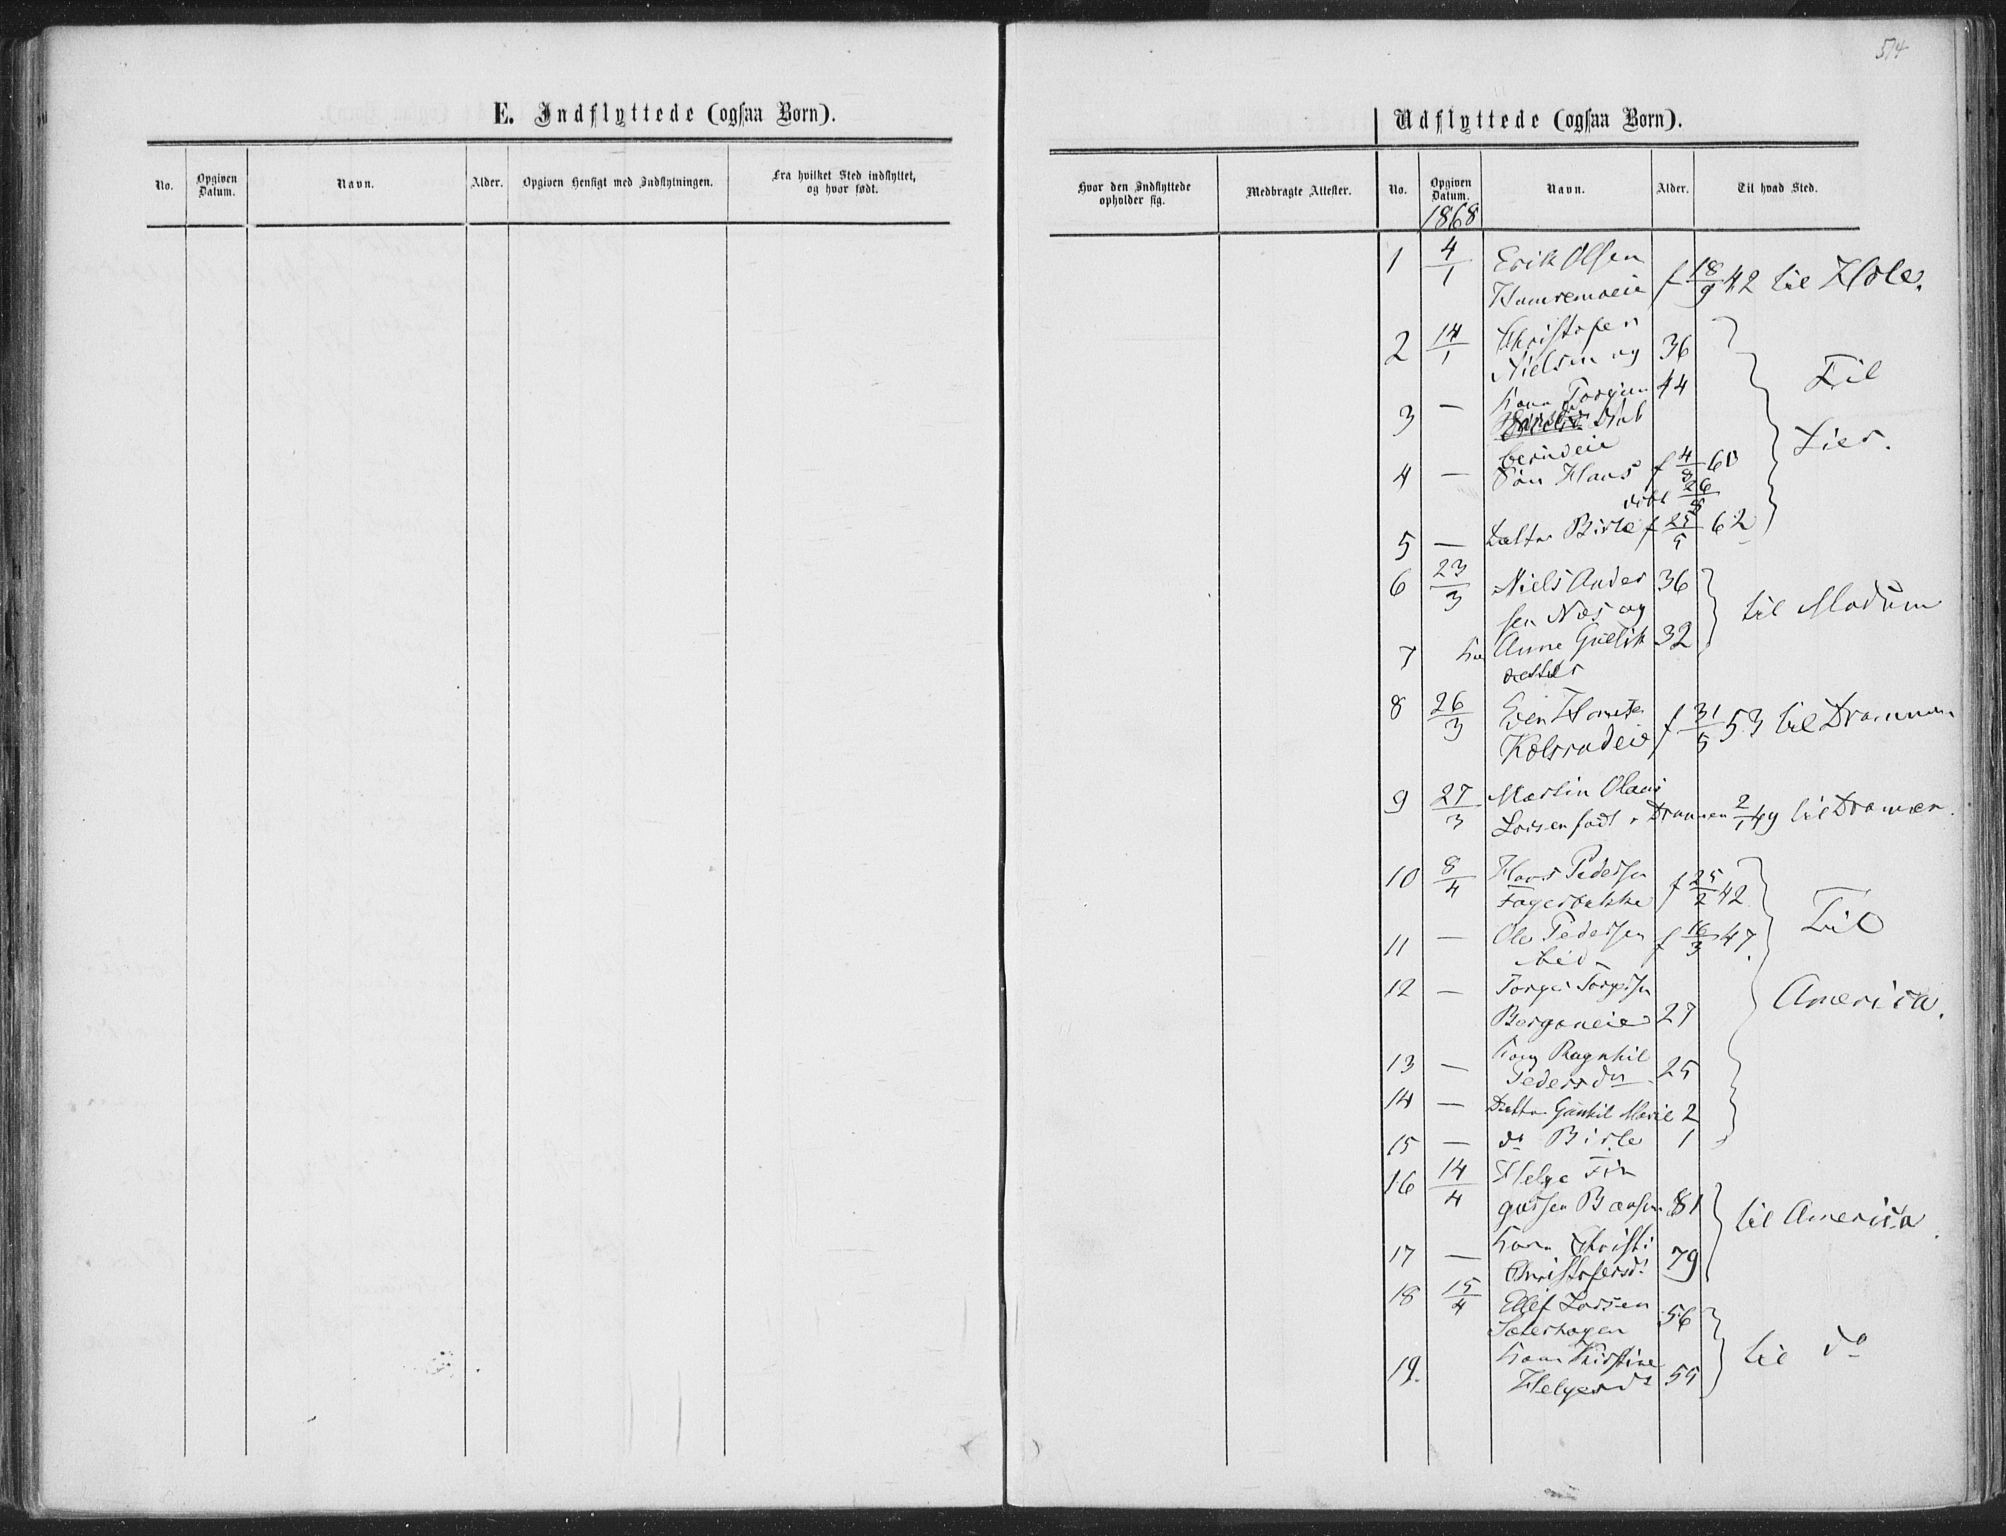 514
E. Indflyttede (ogsaa Børn).
No.
Opgiven Datum.
Navn.
Alder.
Opgiven Hensigt med Indflytningen.
Fra hvilket Sted indflyttet, og hvor født.
Udflyttede (ogsaa Børn).
Hvor den Indflyttede opholder sig.
Medbragte Attester.
No.
Opgiven Datum.
Navn.
Alder.
Til hvad Sted.
1868
1 4/1 Erik Olsen
f 18/9 42 til Hole.
2 14/1 Christofer
Nielsen og 36
3 — Kone Torgun 44
Til
Lier.
4 — Søn Hans f 4/3 60
døbt 26/8
5 — Datter Birte f 25/5 62
6 23/3 Niels Ander 36
sen Næs og
til Modum
7 Anne Gulbik 32
datter
8 26/3 Even
f 31/5 53 til Drammen
9 27/3 Martin Olaus
Larsen født i Drammen 2/1 49 til Dramen.
10 8/4 Hans Pedersen
Fagerbakke f 25/2 42
11 — Ole Pedersen f 16/3 47.
ibid
Til
America.
12 — Torger Torgersen
Berganeie 27
13 — Kone Ragnhil
Pedersdr 25
14 — Datter Gunhil Marie 2
15 — do Birte 1
16 14/4 Helge Fin
garsen 81
til America.
17 — Kone Christi
Christofersd. 79
18 15/4 Ellef Larsen
Sæterhagen 56
19. Kone Kirstine
Helgesdr 55
til do